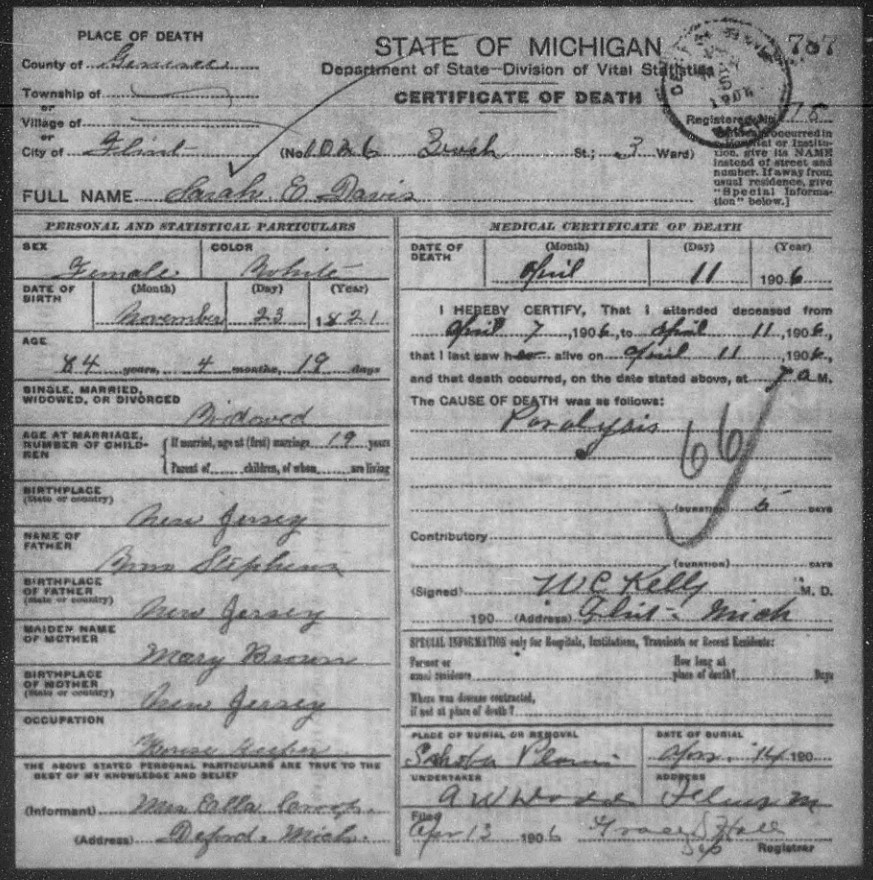 PLACE OF DEATH
County of Genesee
Township of
or
Village of
or
City of Flint
STATE OF MICHIGAN
Department of State—Division of Vital Statistics
CERTIFICATE OF DEATH
707
Registered No. 75
(No. 1026 St.; 3 Ward)
[If death occurred in a Hospital or Institution, give its NAME
instead of street and
number. If away from
usual residence, give
"Special Information" below.]
FULL NAME Sarah E Davis
PERSONAL AND STATISTICAL PARTICULARS
SEX
Female
COLOR
White
DATE OF BIRTH
(Month) (Day) (Year)
November 23 1821
AGE
84 years, 4 months, 19 days
SINGLE, MARRIED,
WIDOWED, OR DIVORCED
Widowed
AGE AT MARRIAGE,
NUMBER OF CHILDREN
If married, age at (first) marriage 19 years
Parent of children, of whom are living
BIRTHPLACE
(State or country)
New Jersey
NAME OF
FATHER
Stephens
BIRTHPLACE
OF FATHER
(State or country)
New Jersey
MAIDEN NAME
OF MOTHER
Mary Brown
BIRTHPLACE
OF MOTHER
(State or country)
New Jersey
OCCUPATION
House Keeper
THE ABOVE STATED PERSONAL PARTICULARS ARE TRUE TO THE
BEST OF MY KNOWLEDGE AND BELIEF
(Informant) Mrs Ella
(Address) Deford, Mich.
MEDICAL CERTIFICATE OF DEATH
DATE OF
DEATH
(Month) (Day) (Year)
April 11 1906
I HEREBY CERTIFY, That I attended deceased from
April 7, 1906, to April 11, 1906,
that I last saw her alive on April 11, 1906,
and that death occurred, on the date stated above, at 7 a M.
The CAUSE OF DEATH was as follows:
Paralysis
66
(DURATION) 5 DAYS
Contributory
(DURATION) DAYS
(Signed) W C Kelly M. D.
190 (Address) Flint - Mich
SPECIAL INFORMATION only for Hospitals, Institutions, Transients or Recent Residents:
Former or
usual residence
How long at
place of death? Days
Where was disease contracted,
if not at place of death?
PLACE OF BURIAL OR REMOVAL
DATE OF BURIAL
Apr. 14 190
UNDERTAKER
ADDRESS
Filed
Apr 13 1906 Grace Hall
Dep Registrar